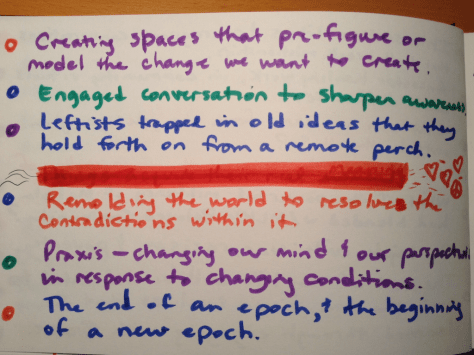 Creating spaces that pre-figure or
model the change we want to create.
Engaged conversation to sharpen awareness.
Leftists trapped in old ideas that they
hold forth on from a remote perch.
Remolding the world to resolve the
contradictions within it.
Praxis – changing our mind & our perspective
in response to changing conditions.
The end of an epoch, & the beginning
of a new epoch.